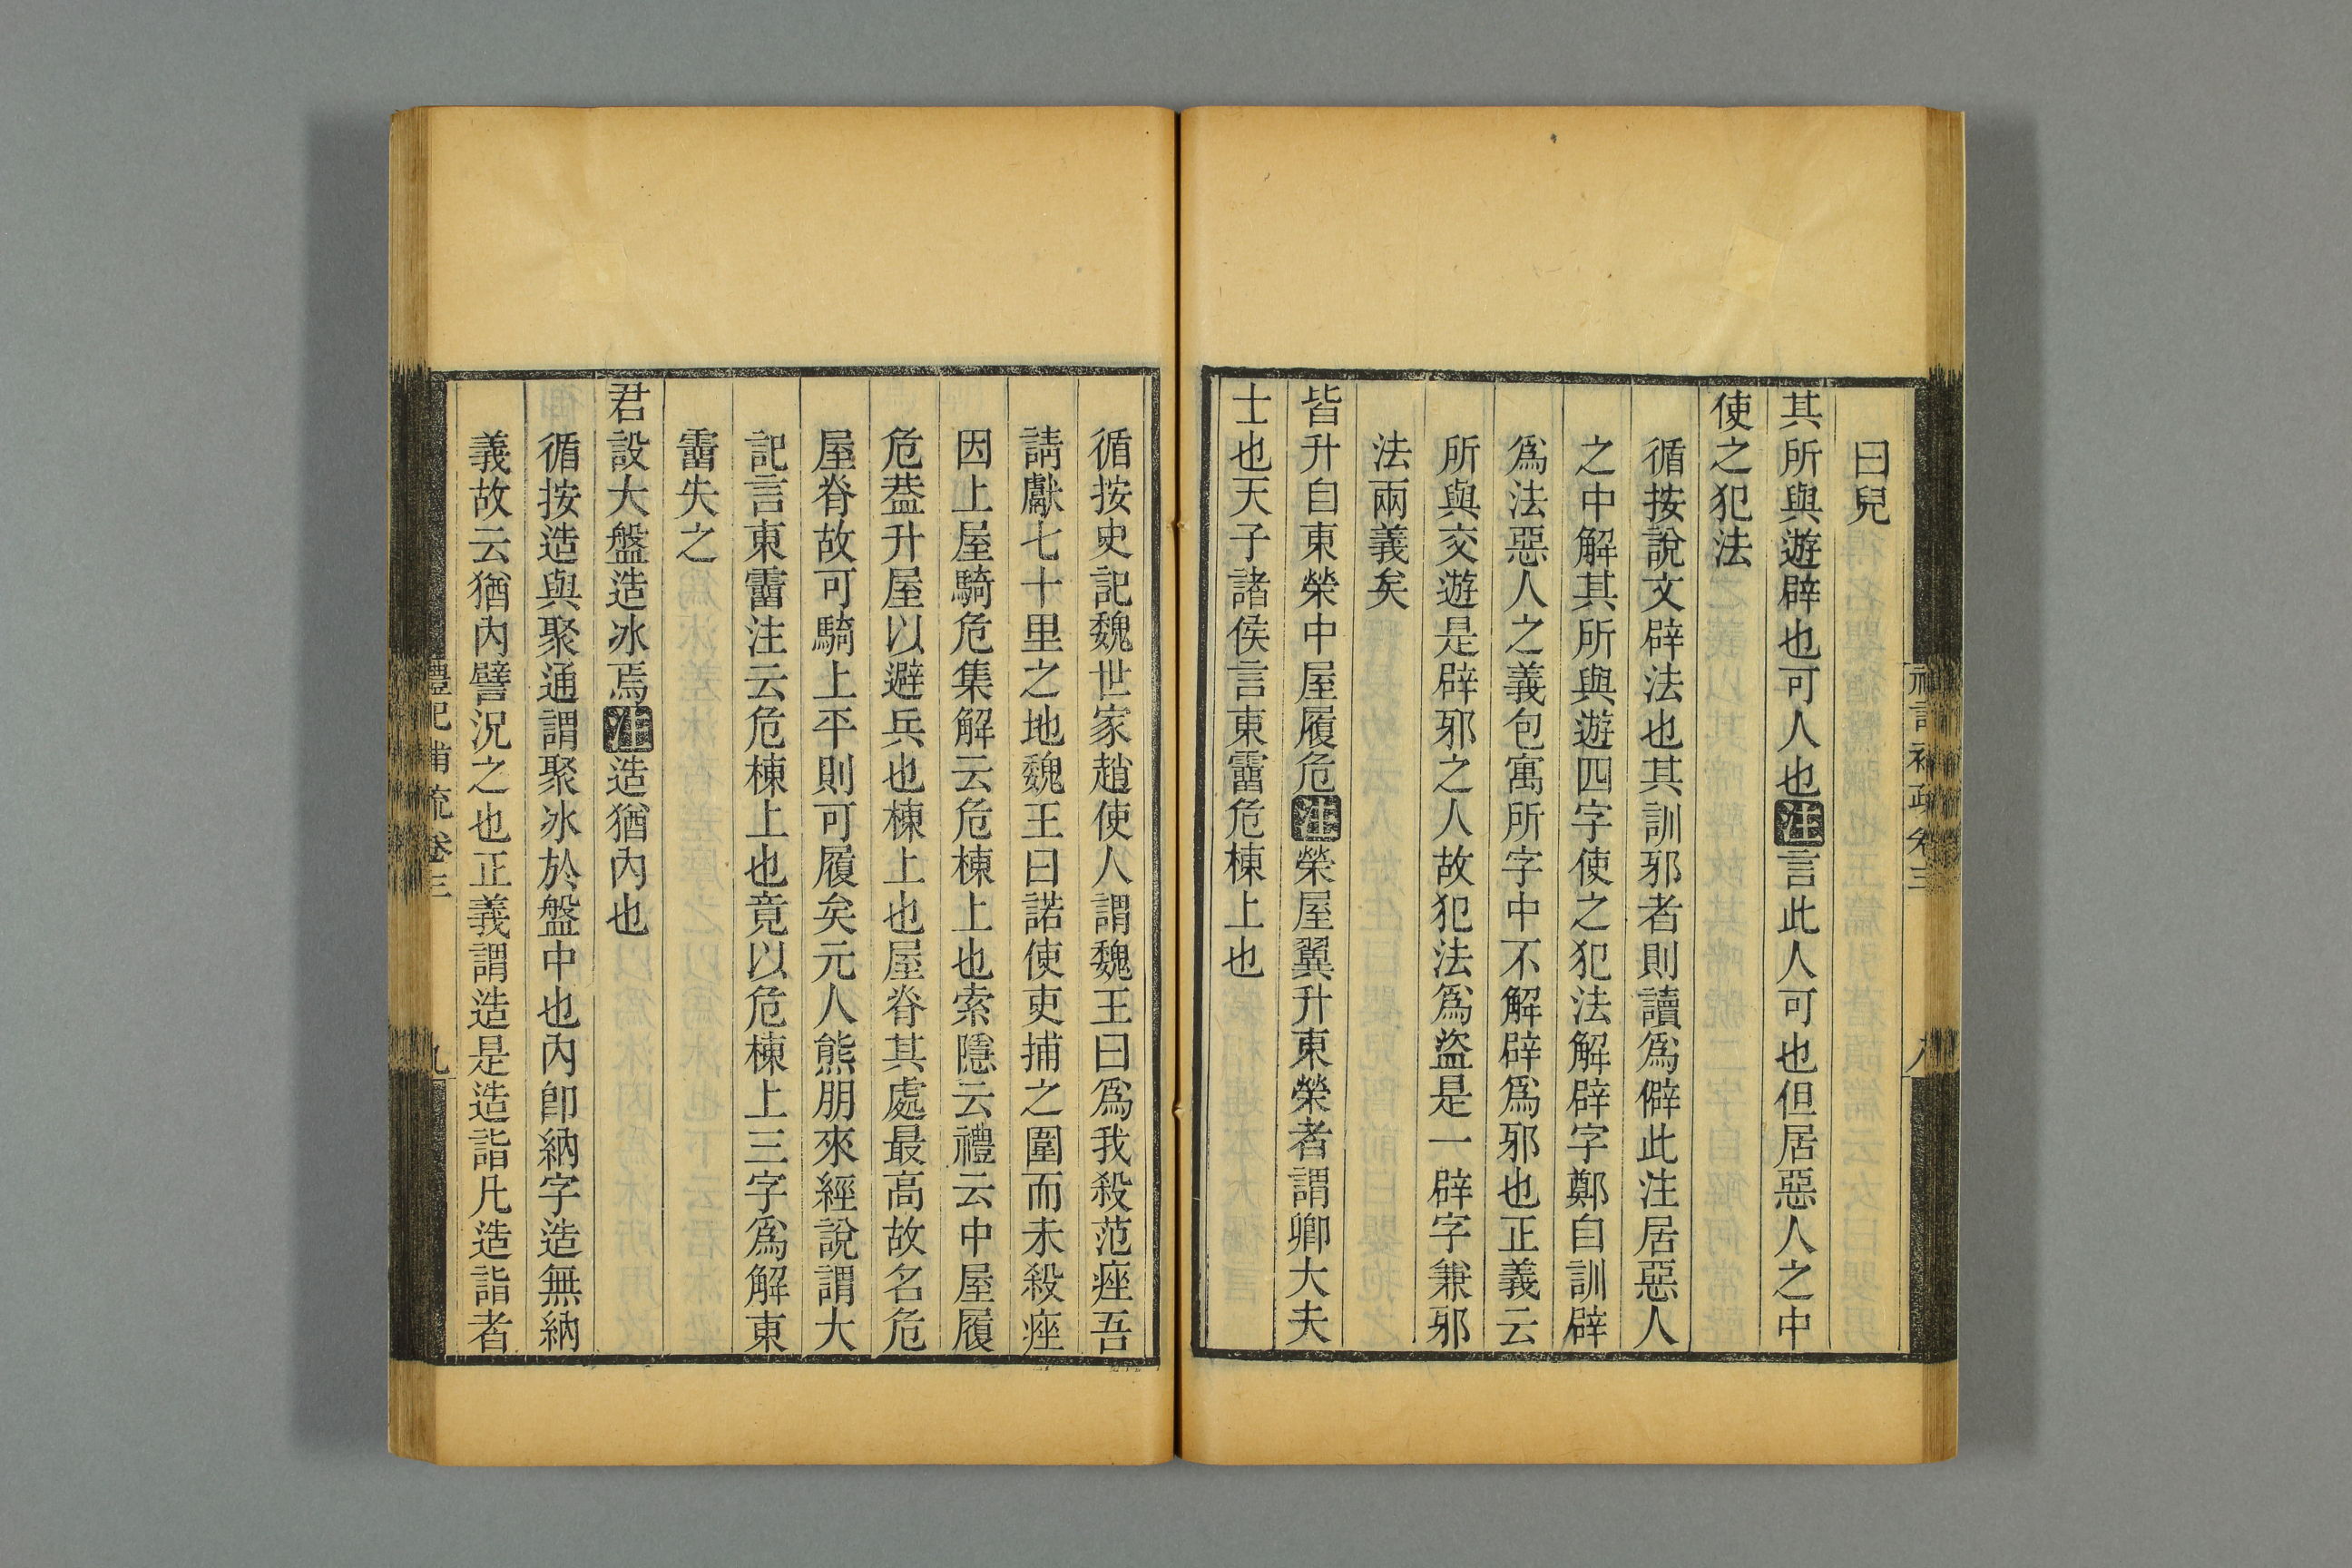 曰兒
其所與遊辟也可人也注言此人可也但居惡人之中
使之犯法
循按說文辟法也其訓邪者則讀爲僻此注居惡人
之中解其所與遊四字使之犯法解辟字鄭自訓辟
爲法惡人之義包寓所字中不解辟爲邪也正義云
所與交遊是辟邪之人故犯法爲盜是一辟字兼邪
法兩義矣
皆升自東榮中屋履危注榮屋翼升東榮者謂卿大夫
士也天子諸侯言東霤危棟上也
循按史記魏世家趙使人謂魏王曰爲我殺范痤吾
請獻七十里之地魏王曰諾使吏捕之圍而未殺痤
因上屋騎危集解云危棟上也索隱云禮云中屋履
危葢升屋以避兵也棟上也屋脊其處最高故名危
屋脊故可騎上平則可履矣元人熊朋來經說謂大
記言東霤注云危棟上也竟以危棟上三字爲解東
霤失之
君設大盤造冰焉注造猶內也
循按造與聚通謂聚冰於盤中也內卽納字造無納
義故云猶內譬況之也正義謂造是造詣凡造詣者
禮記補疏卷三
九